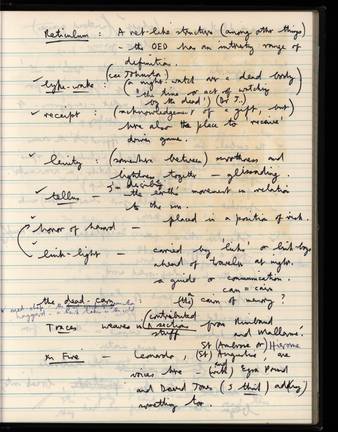 Reticulum : A net-like structure (among other things)
- the OED has an intriguing range of
definition.
(see Johnson)
✓ lyke-wake : ('a night watch over a dead body'
'the time or act of watching
by the dead') (Dr J..)
✓ receipt : (acknowledgement of a gift, but)
here also 'the place to receive'
driven game.
✓ lenity : (somewhere between) smoothness and
lightness together —
✓ tellus — the earth's movement in relation
to the sun.
✓ honor of hazard — placed in a position of risk.
✓ link-light — carried by 'links' or link-boys
ahead of travellers at night.
a guide or communication.
cam = cairn
the dead-cam : (the) cairn of memory ?
Traces — weaves in (contributed
a section stuff) from Rimbaud
and Mallarmé.
St (Ambrose or) Hierome
The Fire — Leonardo, (St) Augustine, are
voices here — (with) Ezra Pound
and David Jones (I think) adding
something too.